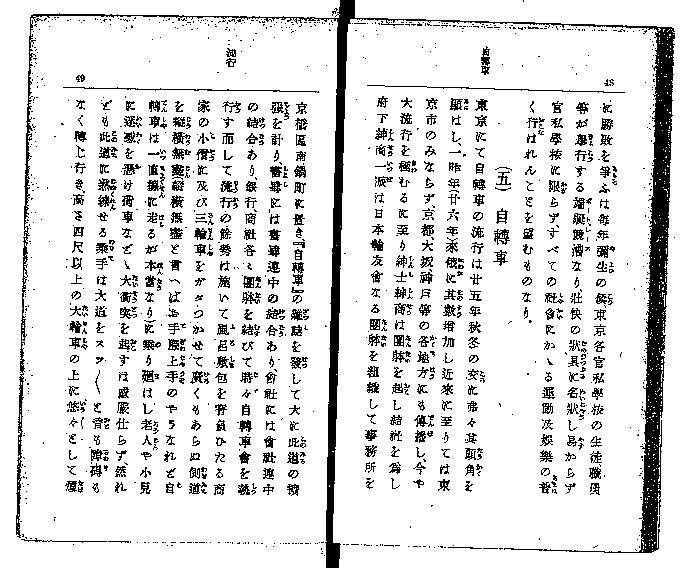 自轉車
48
に勝敗を爭ふは每年彌生の候東京各官私學校の生徒職員
等が擧行する端艇競漕なり壯快の狀具に名狀し易からず
官私學校に限らずすべての社會にかゝる運動及娛樂の普
く行はれんことを望むものなり、
(五) 自轉車
東京にて自轉車の流行は廿五年秋冬の交に
し、一昨年廿六年 其數增加し近來に至りては東
京市のみならず、京都大阪神戸等の各地方にも傳播し、今や
大流行を極むるに至り紳士紳商は團躰を起し結社を爲し
府下紳商一派は日本輪友會なる團躰を組織して事務所を
流行
49
京橋區南鍋町に置き『自轉車』の雜誌を發して大に此道の擴
張を計り、 連中の結合あり、會社には會社連中
の結合あり、銀行商社各々團躰を結びて時々自轉車會を執
行す而して流行の餘勢は施いて風呂敷包を脊負ひたる商
家の小僧に及び三輪車をガタつかせて廣くもあらぬ街道
を縱橫無盡縱橫無盡と言へば手際上手のやうなれど自
轉車は一直線に走るが本當なりに乘り廻はし老人や小兒
に迷惑を懸け荷車などゝ大衝突を起すは感服仕らず、然れ
ども此道に熟練せる乘手は大道をスウ〱と音も障碍も
なく轉じ行き、高さ四尺以上の大輪車の上に悠々として